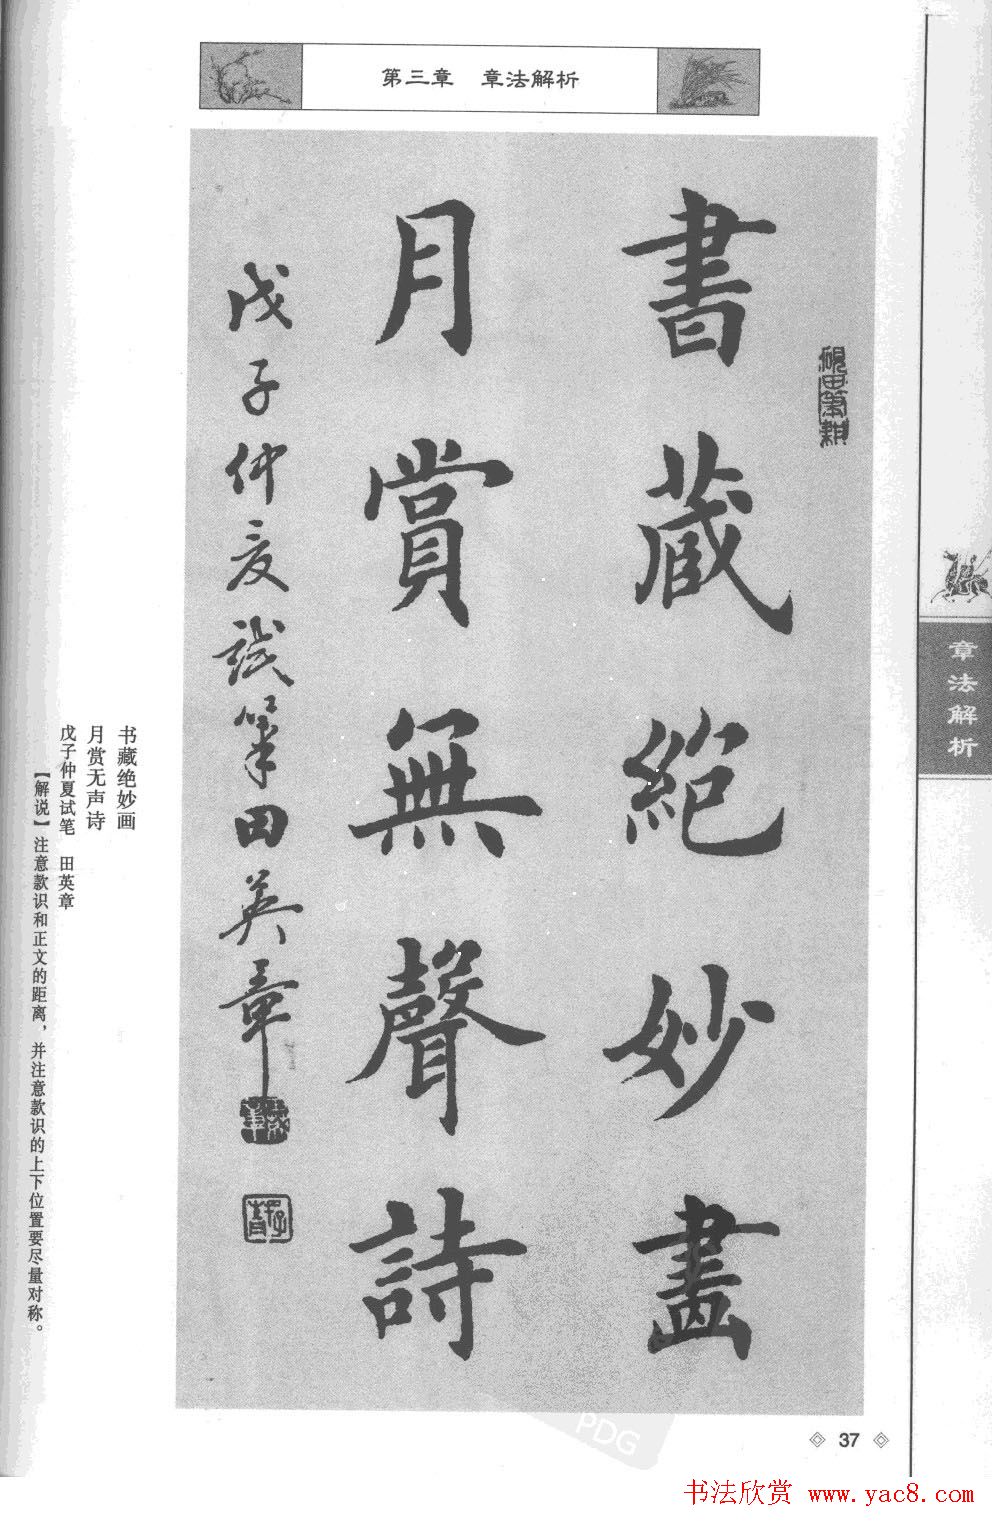 第三章 章法解析
書藏絕妙畫
月賞無聲詩
戊子仲夏試筆田英章
砚田笔耕
章法解析
书藏绝妙画
月赏无声诗
戊子仲夏试笔 田英章
【解说】注意款识和正文的距离，并注意款识的上下位置要尽量对称。
37
PDG
书法欣赏 www.yac8.com